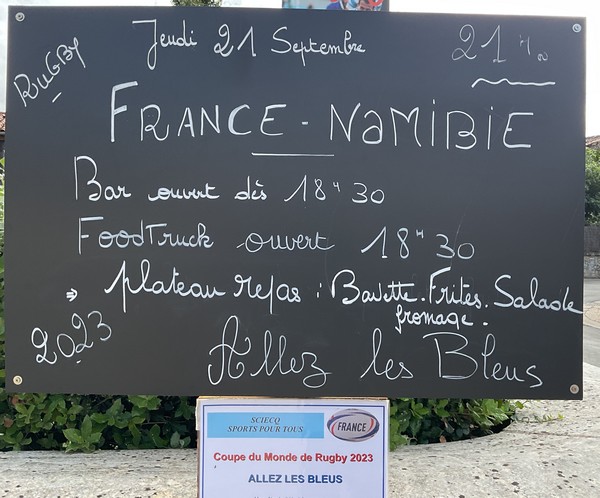 RUGBY
Jeudi 21 Septembre
21 H
FRANCE - NaMIBIE
Bar ouvert dès 18 H 30
FoodTruck ouvert 18 H 30
⇒ plateau repas : Bavette. Frites. Salade
fromage.
2023
Allez les Bleus
SCIECQ
SPORTS POUR TOUS
FRANCE
Coupe du Monde de Rugby 2023
ALLEZ LES BLEUS